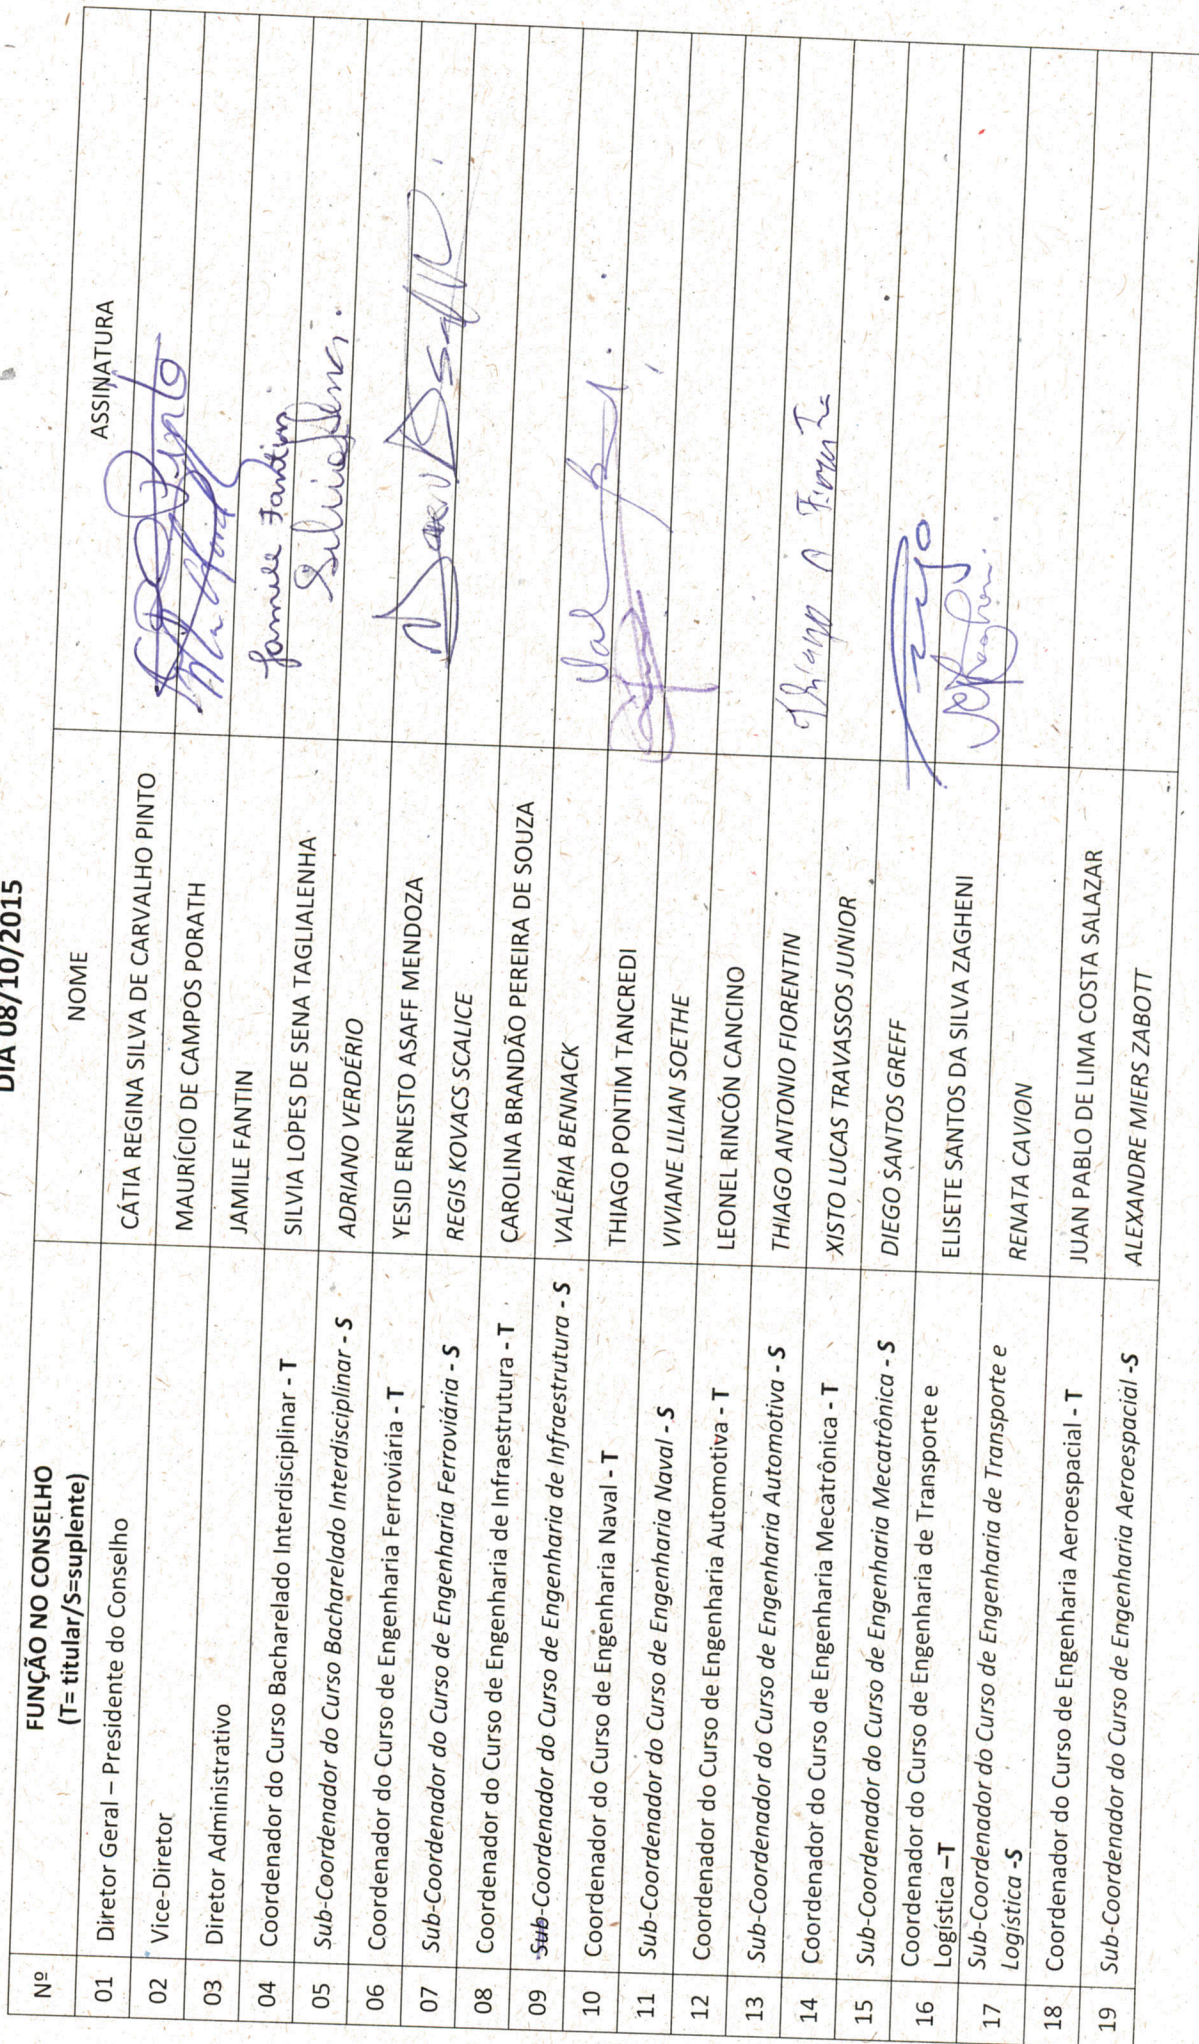 DIA 08/10/2015
Nº FUNÇÃO NO CONSELHO NOME ASSINATURA
(T= titular/S=suplente)
01 Diretor Geral – Presidente do Conselho CÁTIA REGINA SILVA DE CARVALHO PINTO Pinto
02 Vice-Diretor MAURÍCIO DE CAMPOS PORATH
03 Diretor Administrativo JAMILE FANTIN Jamile Fantin
04 Coordenador do Curso Bacharelado Interdisciplinar - T SILVIA LOPES DE SENA TAGLIALENHA
05 Sub-Coordenador do Curso Bacharelado Interdisciplinar - S ADRIANO VERDÉRIO
06 Coordenador do Curso de Engenharia Ferroviária - T YESID ERNESTO ASAFF MENDOZA
07 Sub-Coordenador do Curso de Engenharia Ferroviária - S REGIS KOVACS SCALICE
08 Coordenador do Curso de Engenharia de Infraestrutura - T CAROLINA BRANDÃO PEREIRA DE SOUZA
09 Sub-Coordenador do Curso de Engenharia de Infraestrutura - S VALÉRIA BENNACK
10 Coordenador do Curso de Engenharia Naval - T THIAGO PONTIM TANCREDI
11 Sub-Coordenador do Curso de Engenharia Naval -S VIVIANE LILIAN SOETHE
12 Coordenador do Curso de Engenharia Automotiva - T LEONEL RINCÓN CANCINO
13 Sub-Coordenador do Curso de Engenharia Automotiva - S THIAGO ANTONIO FIORENTIN
14 Coordenador do Curso de Engenharia Mecatrônica - T XISTO LUCAS TRAVASSOS JUNIOR
15 Sub-Coordenador do Curso de Engenharia Mecatrônica - S DIEGO SANTOS GREFF
16 Coordenador do Curso de Engenharia de Transporte e ELISETE SANTOS DA SILVA ZAGHENI
Logística –T
17 Sub-Coordenador do Curso de Engenharia de Transporte e RENATA CAVION
Logística -S
18 Coordenador do Curso de Engenharia Aeroespacial - T JUAN PABLO DE LIMA COSTA SALAZAR
19 Sub-Coordenador do Curso de Engenharia Aeroespacial -S ALEXANDRE MIERS ZABOTT